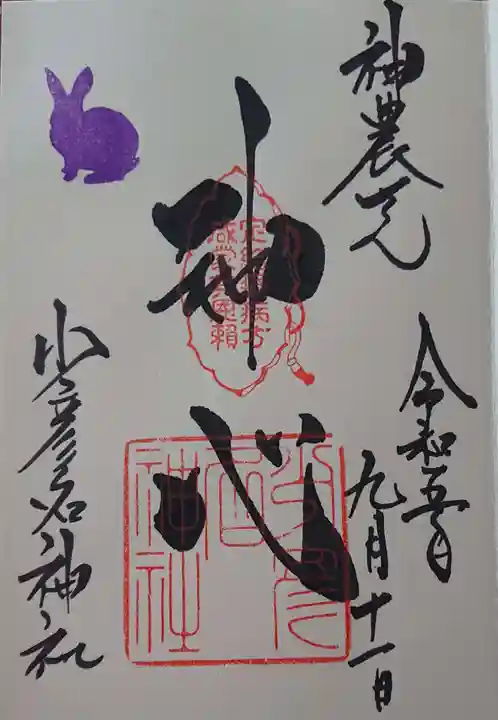 神農さん
令和五年
九月十一日
神心
少彦名神社
少彦名神社